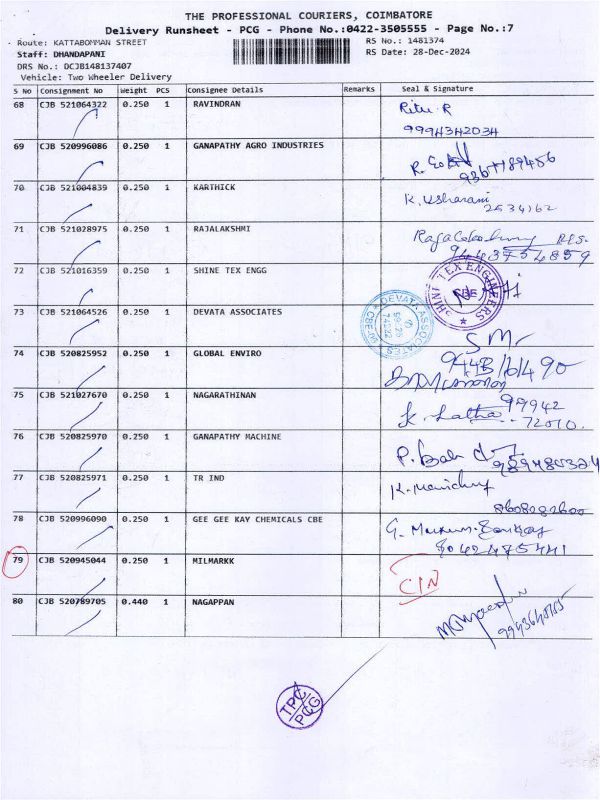 THE PROFESSIONAL COURIERS, COIMBATORE
Delivery Runsheet - PCG - Phone No.:0422-3505555 - Page No.:7
Route: KATTABOMMAN STREET RS No.: 1481374
Staff: DHANDAPANI RS Date: 28-Dec-2024
DRS No.: DCJB148137407
Vehicle: Two Wheeler Delivery
S No Consignment No Weight PCS Consignee Details Remarks Seal & Signature
68 CJB 521064322 0.250 1 RAVINDRAN Ritu. R
9994342034
69 CJB 520996086 0.250 1 GANAPATHY AGRO INDUSTRIES
70 CJB 521004839 0.250 1 KARTHICK K. Usharani
2534162
71 CJB 521028975 0.250 1 RAJALAKSHMI
9443754859
72 CJB 521016359 0.250 1 SHINE TEX ENGG
SHINE TEX ENGINEERS CBE
73 CJB 521064526 0.250 1 DEVATA ASSOCIATES
DEVATA ASSOCIATES
74 CJB 520825952 0.250 1 GLOBAL ENVIRO
75 CJB 521027670 0.250 1 NAGARATHINAN K. Latha 99942
72010.
76 CJB 520825970 0.250 1 GANAPATHY MACHINE
77 CJB 520825971 0.250 1 TR IND
78 CJB 520996090 0.250 1 GEE GEE KAY CHEMICALS CBE
79 CJB 520945044 0.250 1 MILMARKK CIN
80 CJB 520789705 0.440 1 NAGAPPAN
TPC
PCG